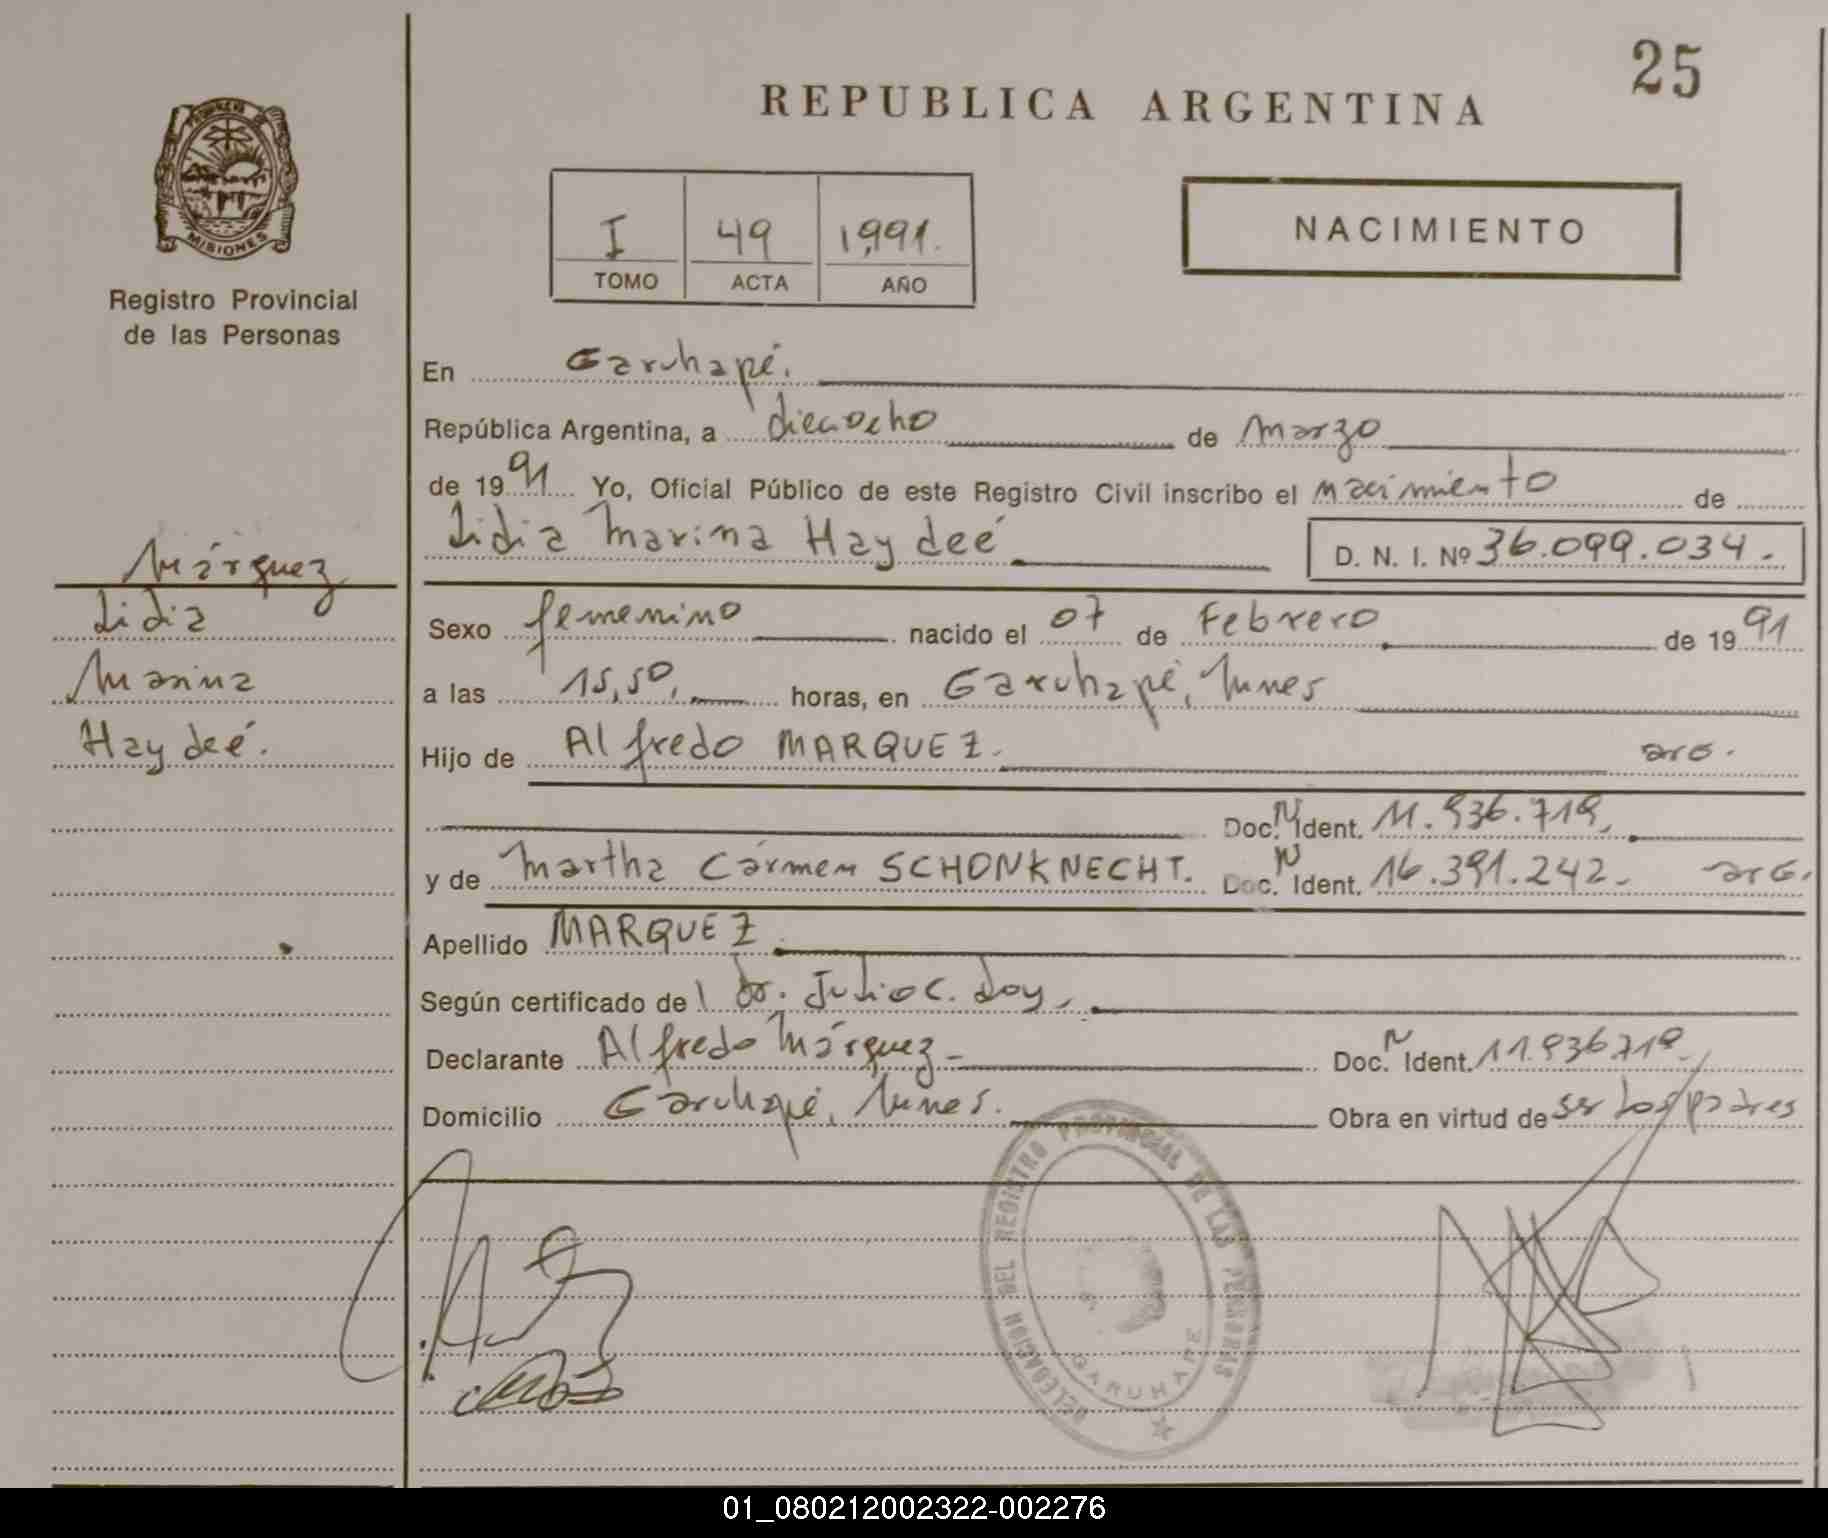 25
REPUBLICA ARGENTINA
PROVINCIA DE
MISIONES
Registro Provincial
de las Personas
I 49 1991.
TOMO ACTA AÑO
NACIMIENTO
En Garuhapé.
República Argentina, a dieciocho de marzo
de 1991 Yo, Oficial Público de este Registro Civil inscribo el nacimiento de
Lidia Marina Haydeé D. N. I. Nº 36.099.034.-
Márquez
Lidia
Marina
Haydeé.
Sexo femenino nacido el 07 de Febrero de 1991
a las 15,50, horas, en Garuhapé,
Hijo de Alfredo MARQUEZ. arg.
Doc. N Ident. 11.936.719,
y de Martha Cármen SCHONKNECHT. Doc. N Ident. 16.391.242.- arg.
Apellido MARQUEZ
Según certificado de dr. Julio C. Loy,
Declarante Alfredo Márquez Doc. N Ident. 11.936.719.
Domicilio Garuhapé, Obra en virtud de ser los padres
DELEGACION DEL REGISTRO PROVINCIAL DE LAS PERSONAS
GARUHAPE
01_080212002322-002276